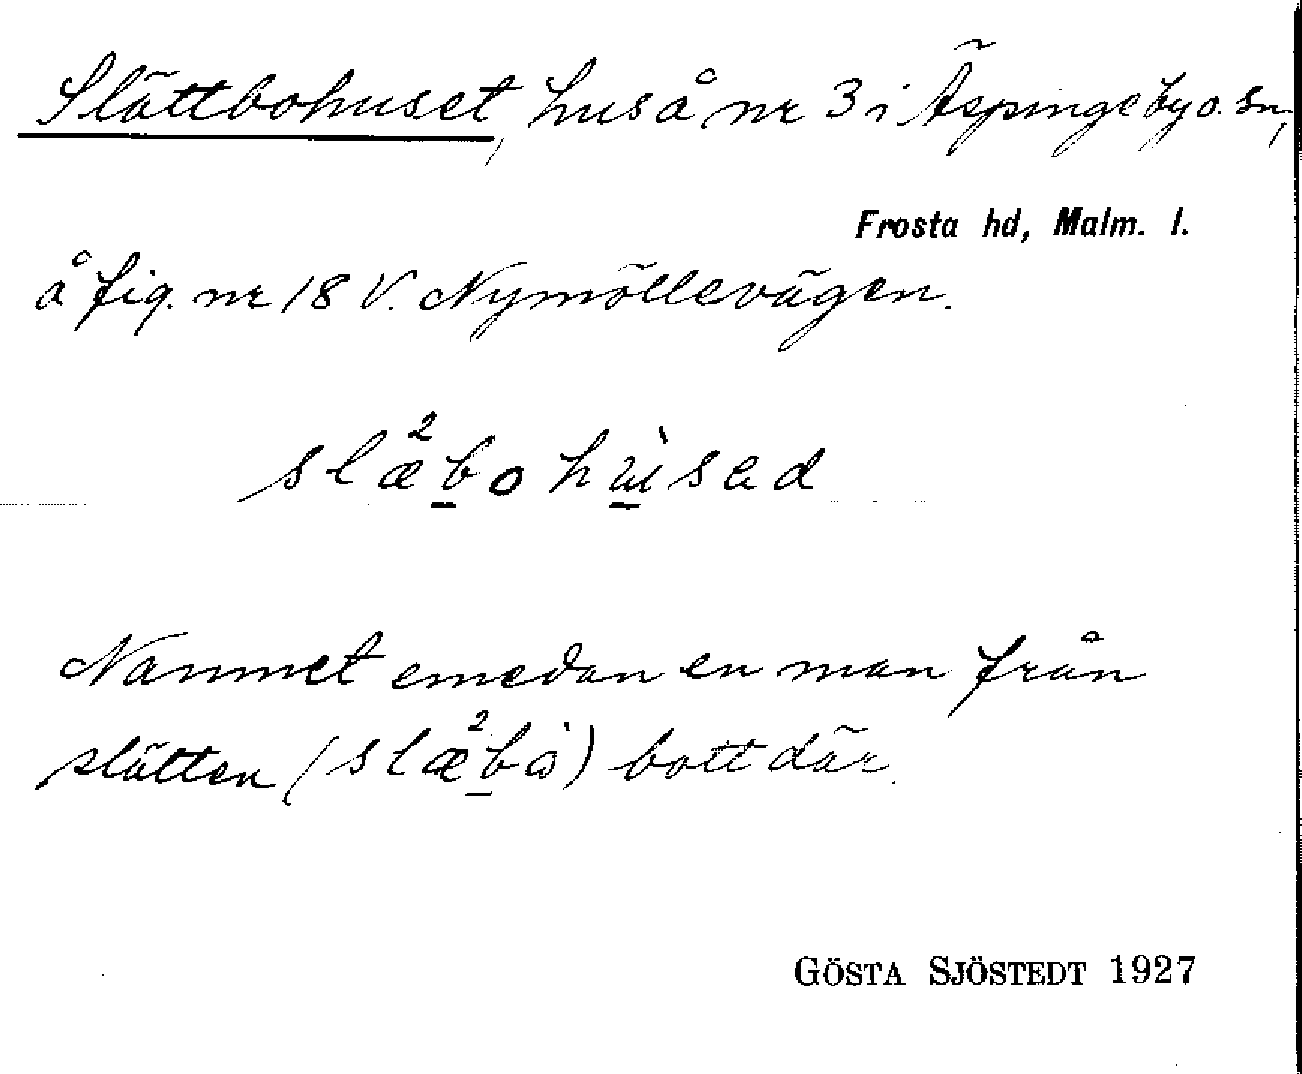 Slättbohuset, hus å nr 3 i Äspinge by o. sn,
Frosta hd, Malm. l.
å fig. nr 18 V. Nymöllevägen.
slæ²bohùsad
Namnet emedan en man från
slätten (slæ²bò) bott där.
GÖSTA SJÖSTEDT 1927